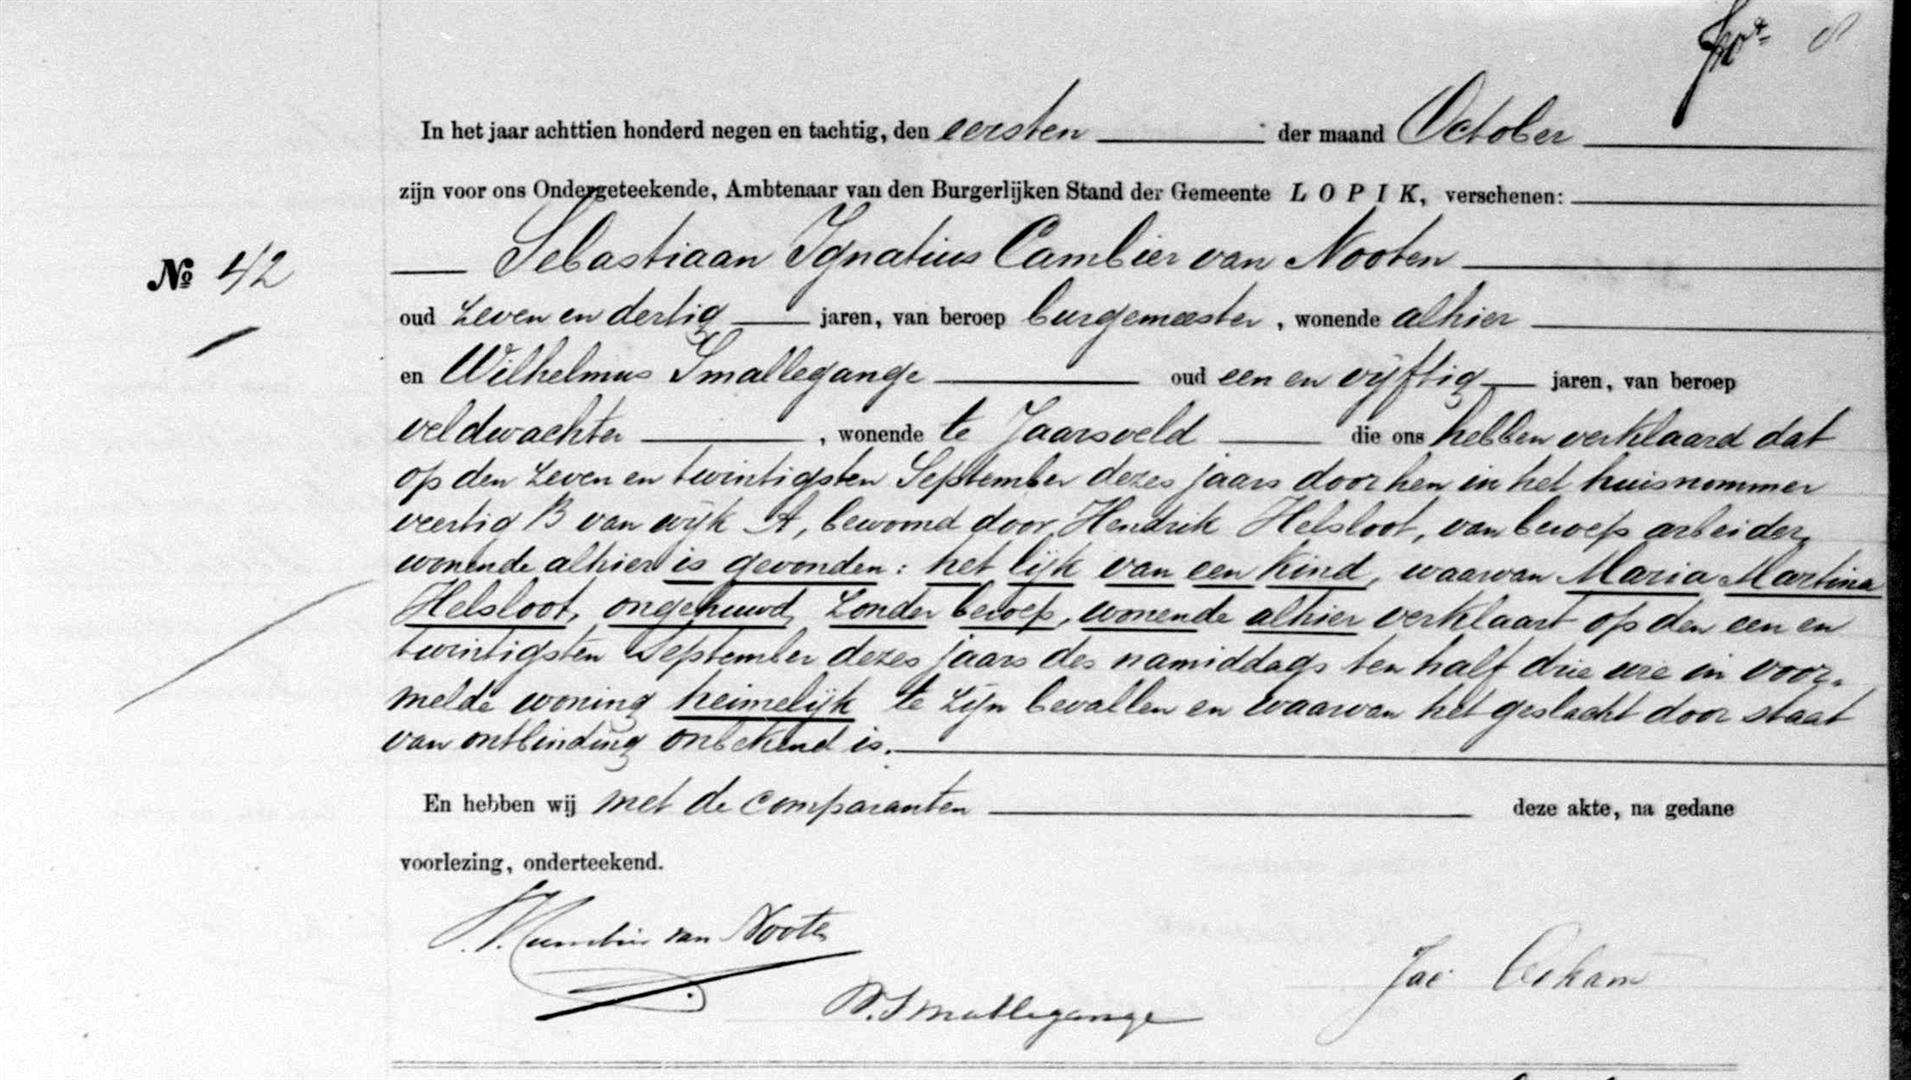 In het jaar achttien honderd negen en tachtig, den eersten der maand October
zijn voor ons Ondergeteekende, Ambtenaar van den Burgerlijken Stand der Gemeente LOPIK, verschenen:
Sebastiaan Ignatius Cambier van Nooten
№ 42
oud zeven en dertig jaren, van beroep burgemeester, wonende alhier
en Wilhelmus Smallegange oud een en vijftig jaren, van beroep
veldwachter, wonende te Jaarsveld die ons hebben verklaard dat
op den zeven en twintigsten September dezes jaars door hen in het huisnommer
veertig B van wijk A, bewoond door Hendrik Helsloot, van beroep arbeider,
wonende alhier is gevonden: het lijk van een kind, waarvan Maria Martina
Helsloot, ongehuwd, zonder beroep, wonende alhier verklaart op den een en
twintigsten September dezes jaars des namiddags ten half drie ure in voor-
melde woning heimelijk te zijn bevallen en waarvan het geslacht door staat
van ontbinding onbekend is.
En hebben wij met de comparanten deze akte, na gedane
voorlezing, onderteekend.
Cambier van Nooten
W. Smallegange